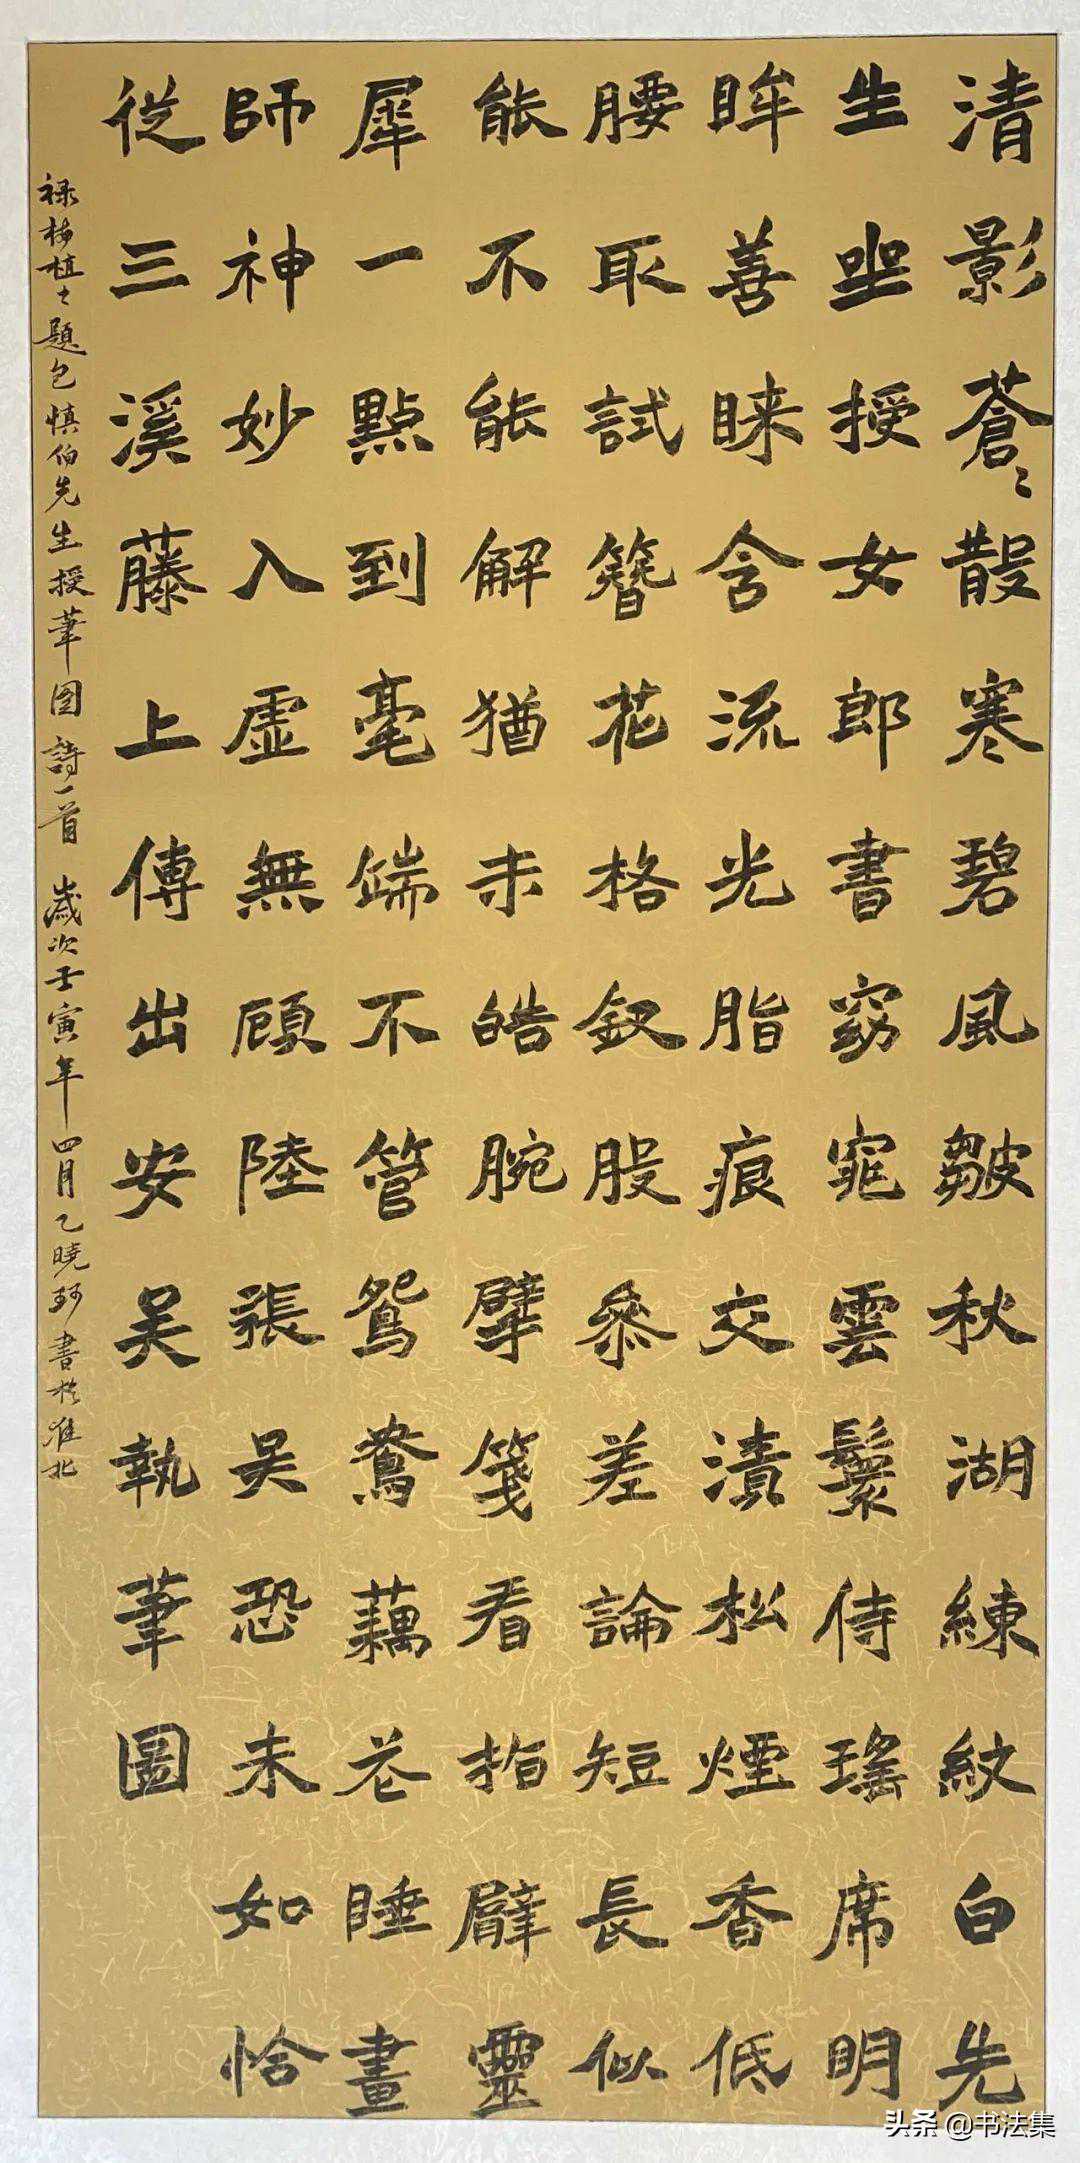 清影蒼〻散寒碧風皺秋湖練紋白先
生坐授女郎書窈窕雲鬟侍瑤席明
眸善睞含流光脂痕交漬松煙香低
腰取試簪花格釵股參差論短長似
能不能解猶未皓腕擘箋看指臂靈
犀一點到毫端不管鴛鴦藕花睡畫
師神妙入虛無顧陸張吳恐未如恰
從三溪藤上傳出安吳執筆圖
題包慎伯先生授筆图詩一首 歲次壬寅年四月 曉 書於淮北
头条 @书法集